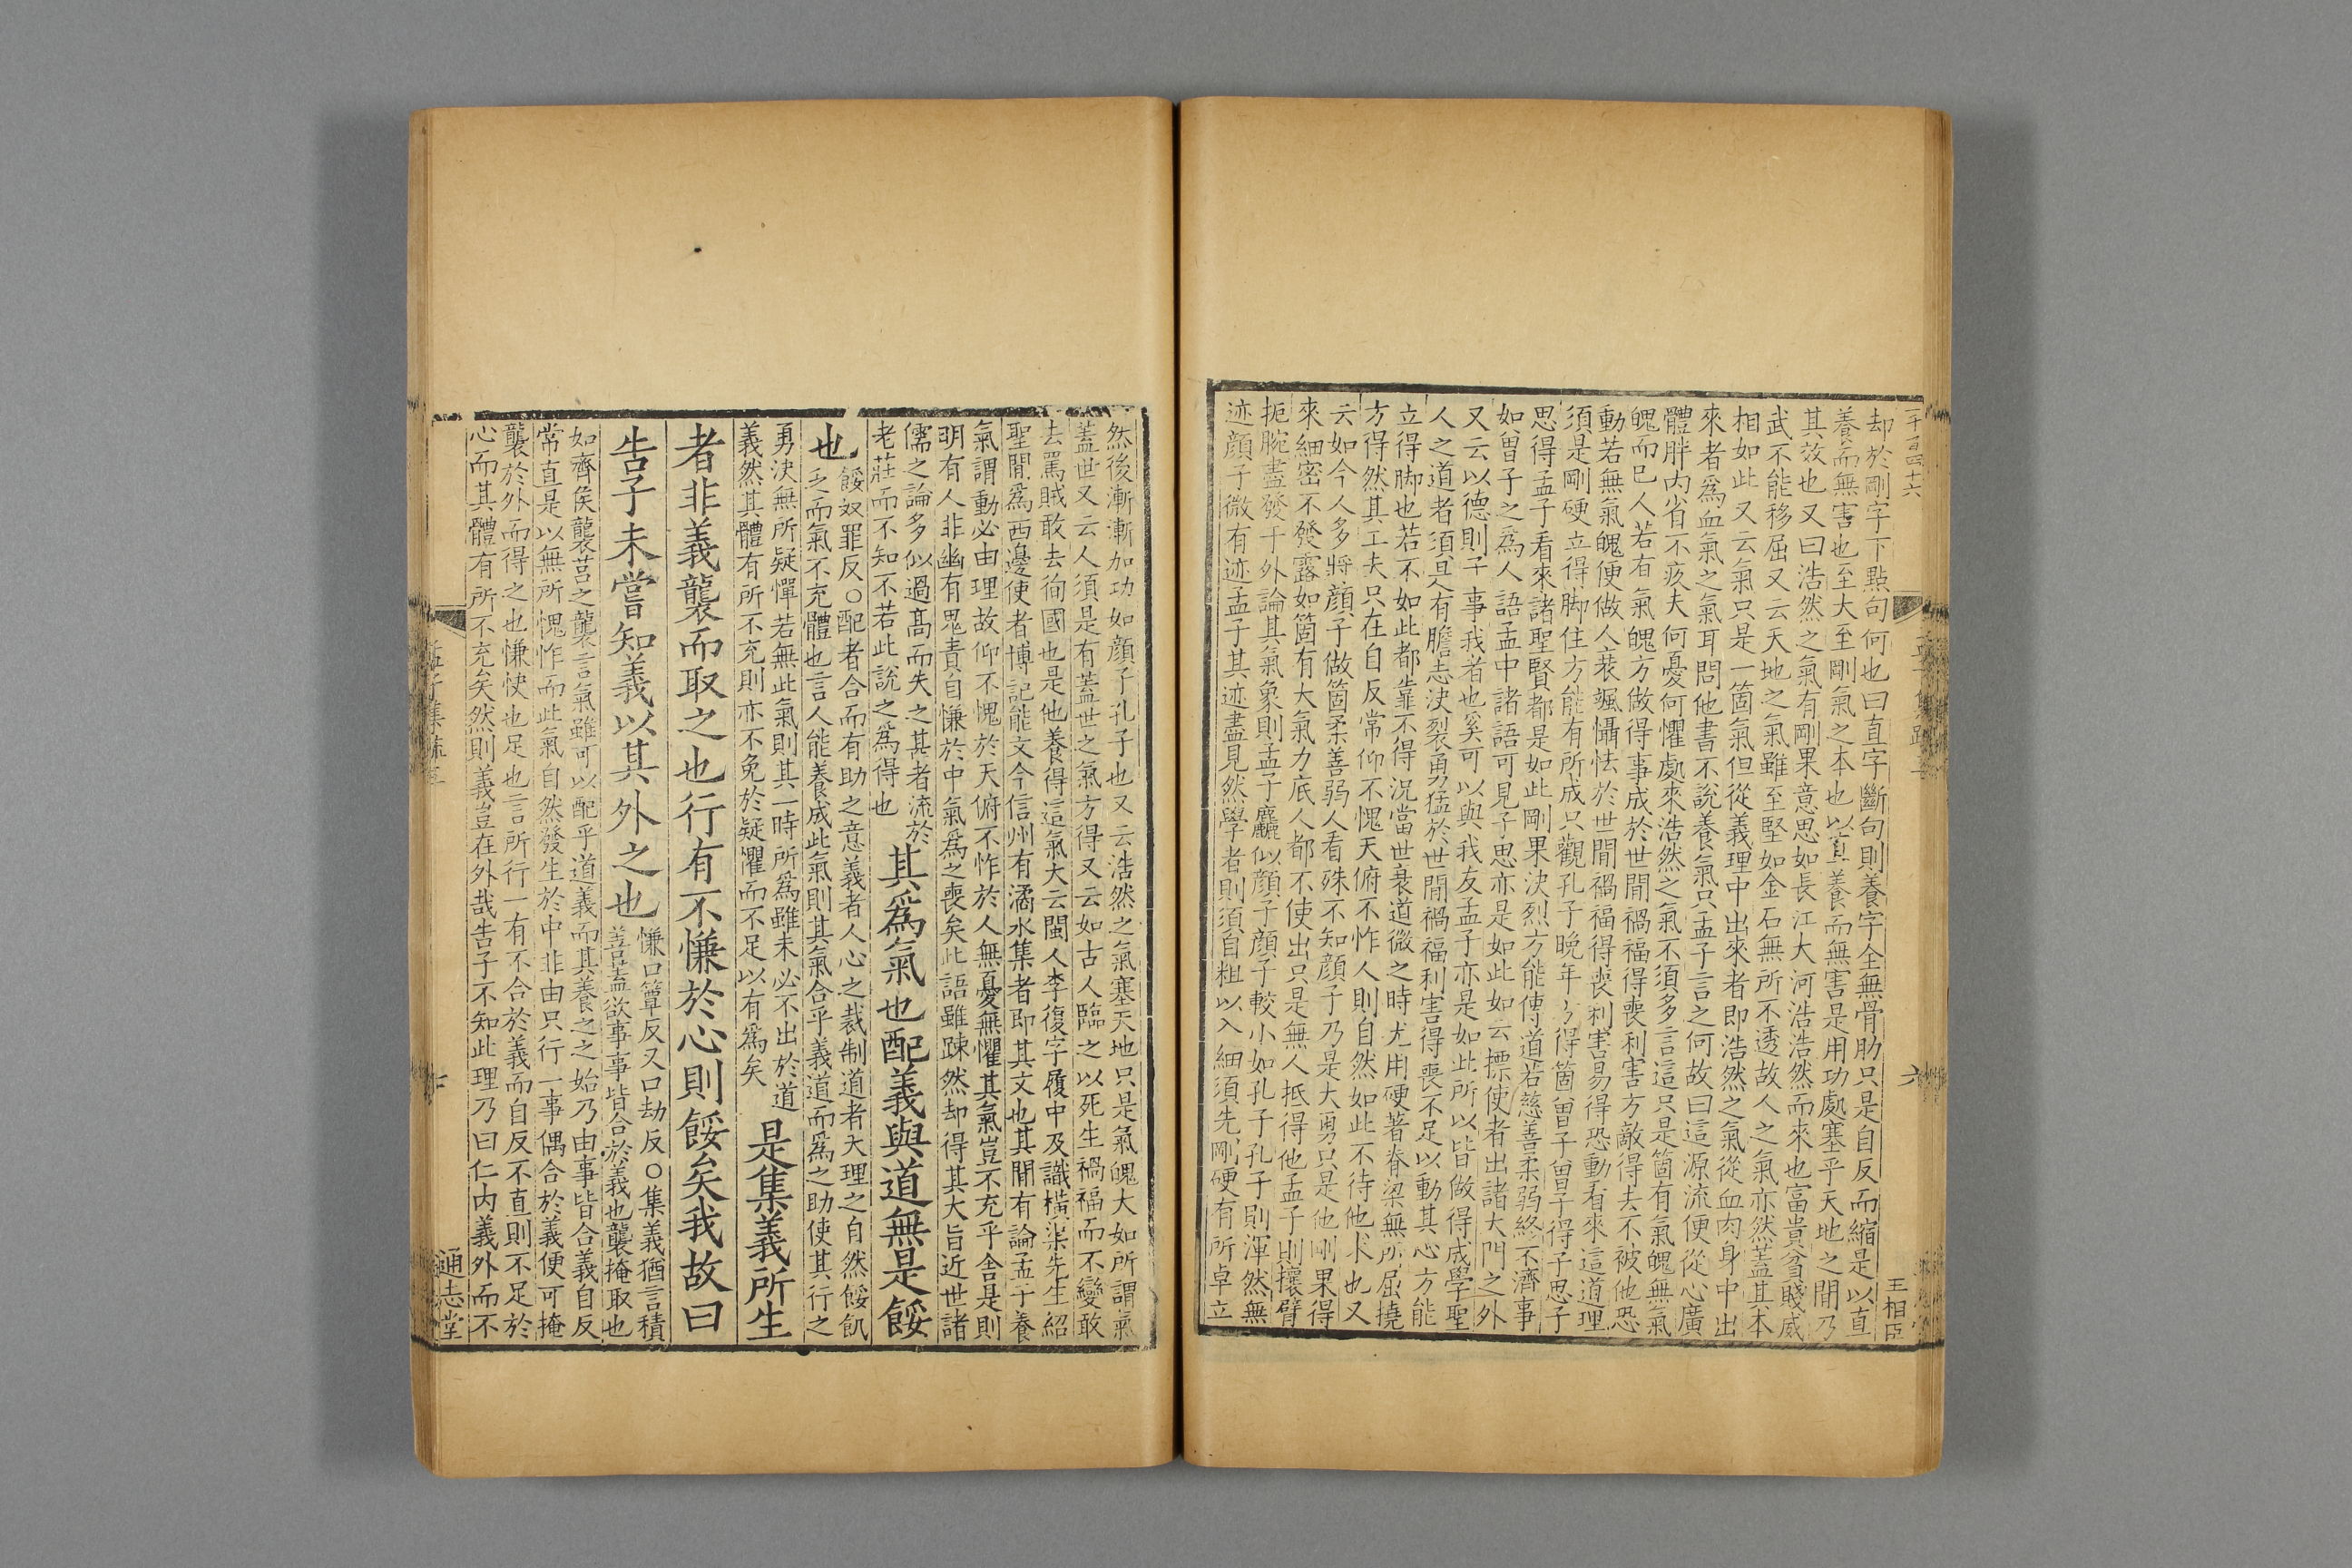 却於剛字下點句何也曰直字斷句則養字全無骨肋只是自反而縮是以直
養而無害也至大至剛氣之本也以直養而無害是用功處塞乎天地之間乃
其效也又曰浩然之氣有剛果意思如長江大河浩浩然而來也富貴貧賤威
武不能移屈又云天地之氣雖至堅如金石無所不透故人之氣亦然蓋其本
相如此又云氣只是一箇氣但從義理中出來者即浩然之氣從血肉身中出
來者爲血氣之氣耳問他書不說養氣只孟子言之何故曰這源流便從心廣
體胖內省不疚夫何憂何懼處來浩然之氣不須多言這只是箇有氣魄無氣
魄而已人若有氣魄方做得事成於世間禍福得喪利害方敵得去不被他恐
動若無氣魄便做人衰颯懾怯於世間禍福得喪利害易得恐動看來這道理
須是剛硬立得脚住方能有所成只觀孔子晚年方得箇曾子曾子得子思子
思得孟子看來諸聖賢都是如此剛果決烈方能傳道若慈善柔弱終不濟事
如曾子之爲人語孟中諸語可見子思亦是如此如云摽使者出諸大門之外
又云以德則子事我者也奚可以與我友孟子亦是如此所以皆做得成學聖
人之道者須是有膽志決裂勇猛於世間禍福利害得喪不足以動其心方能
立得脚也若不如此都靠不得況當世衰道微之時尤用硬著脊梁無所屈撓
方得然其工夫只在自反常仰不愧天俯不怍人則自然如此不待他求也又
云如今人多將顏子做箇柔善弱人看殊不知顏子乃是大勇只是他剛果得
來細密不發露如箇有大氣力底人都不使出只是無人抵得他孟子則攘臂
扼腕盡發于外論其氣象則孟子麤似顏子顏子較小如孔子孔子則渾然無
迹顏子微有迹孟子其迹盡見然學者則須自粗以入細須先剛硬有所卓立
王相臣
六
然後漸漸加功如顏子孔子也又云浩然之氣塞天地只是氣魄大如所謂氣
蓋世又云人須是有蓋世之氣方得又云如古人臨之以死生禍福而不變敢
去罵賊敢去徇國也是他養得這氣大云閩人李復字履中及識橫渠先生紹
聖間爲西邊使者博記能文今信州有潏水集者即其文也其間有論孟子養
氣謂動必由理故仰不愧於天俯不怍於人無憂無懼其氣豈不充乎舍是則
明有人非幽有鬼責自慊於中氣爲之喪矣此語雖踈然却得其大旨近世諸
儒之論多似過高而失之其者流於
老莊而不知不若此說之爲得也
其爲氣也配義與道無是餒
也
餒奴罪反○配者合而有助之意義者人心之裁制道者天理之自然餒飢
乏而氣不充體也言人能養成此氣則其氣合乎義道而爲之助使其行之
勇決無所疑憚若無此氣則其一時所爲雖未必不出於道
義然其體有所不充則亦不免於疑懼而不足以有爲矣
是集義所生
者非義襲而取之也行有不慊於心則餒矣我故曰
告子未嘗知義以其外之也
慊口簟反又口劫反○集義猶言積
善蓋欲事事皆合於義也襲掩取也
如齊侯襲莒之襲言氣雖可以配乎道義而其養之之始乃由事皆合義自反
常直是以無所愧怍而此氣自然發生於中非由只行一事偶合於義便可掩
襲於外而得之也慊快也足也言所行一有不合於義而自反不直則不足於
心而其體有所不充矣然則義豈在外哉告子不知此理乃曰仁內義外而不
通志堂